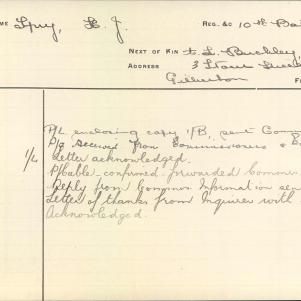 ME Spry, L. J. REG. &C 10th Bat
NEXT OF KIN L. Buckley
ADDRESS 3 Stow Street
Gilberton F
P/L enclosing copy 1/B, sent Com
P/a received from Commissioners &
1/4 Letter acknowledged.
P/Cable - confirmed - forwarded Commis
Reply from Common Information sen
Letter of thanks from Inquirer with
Acknowledged.